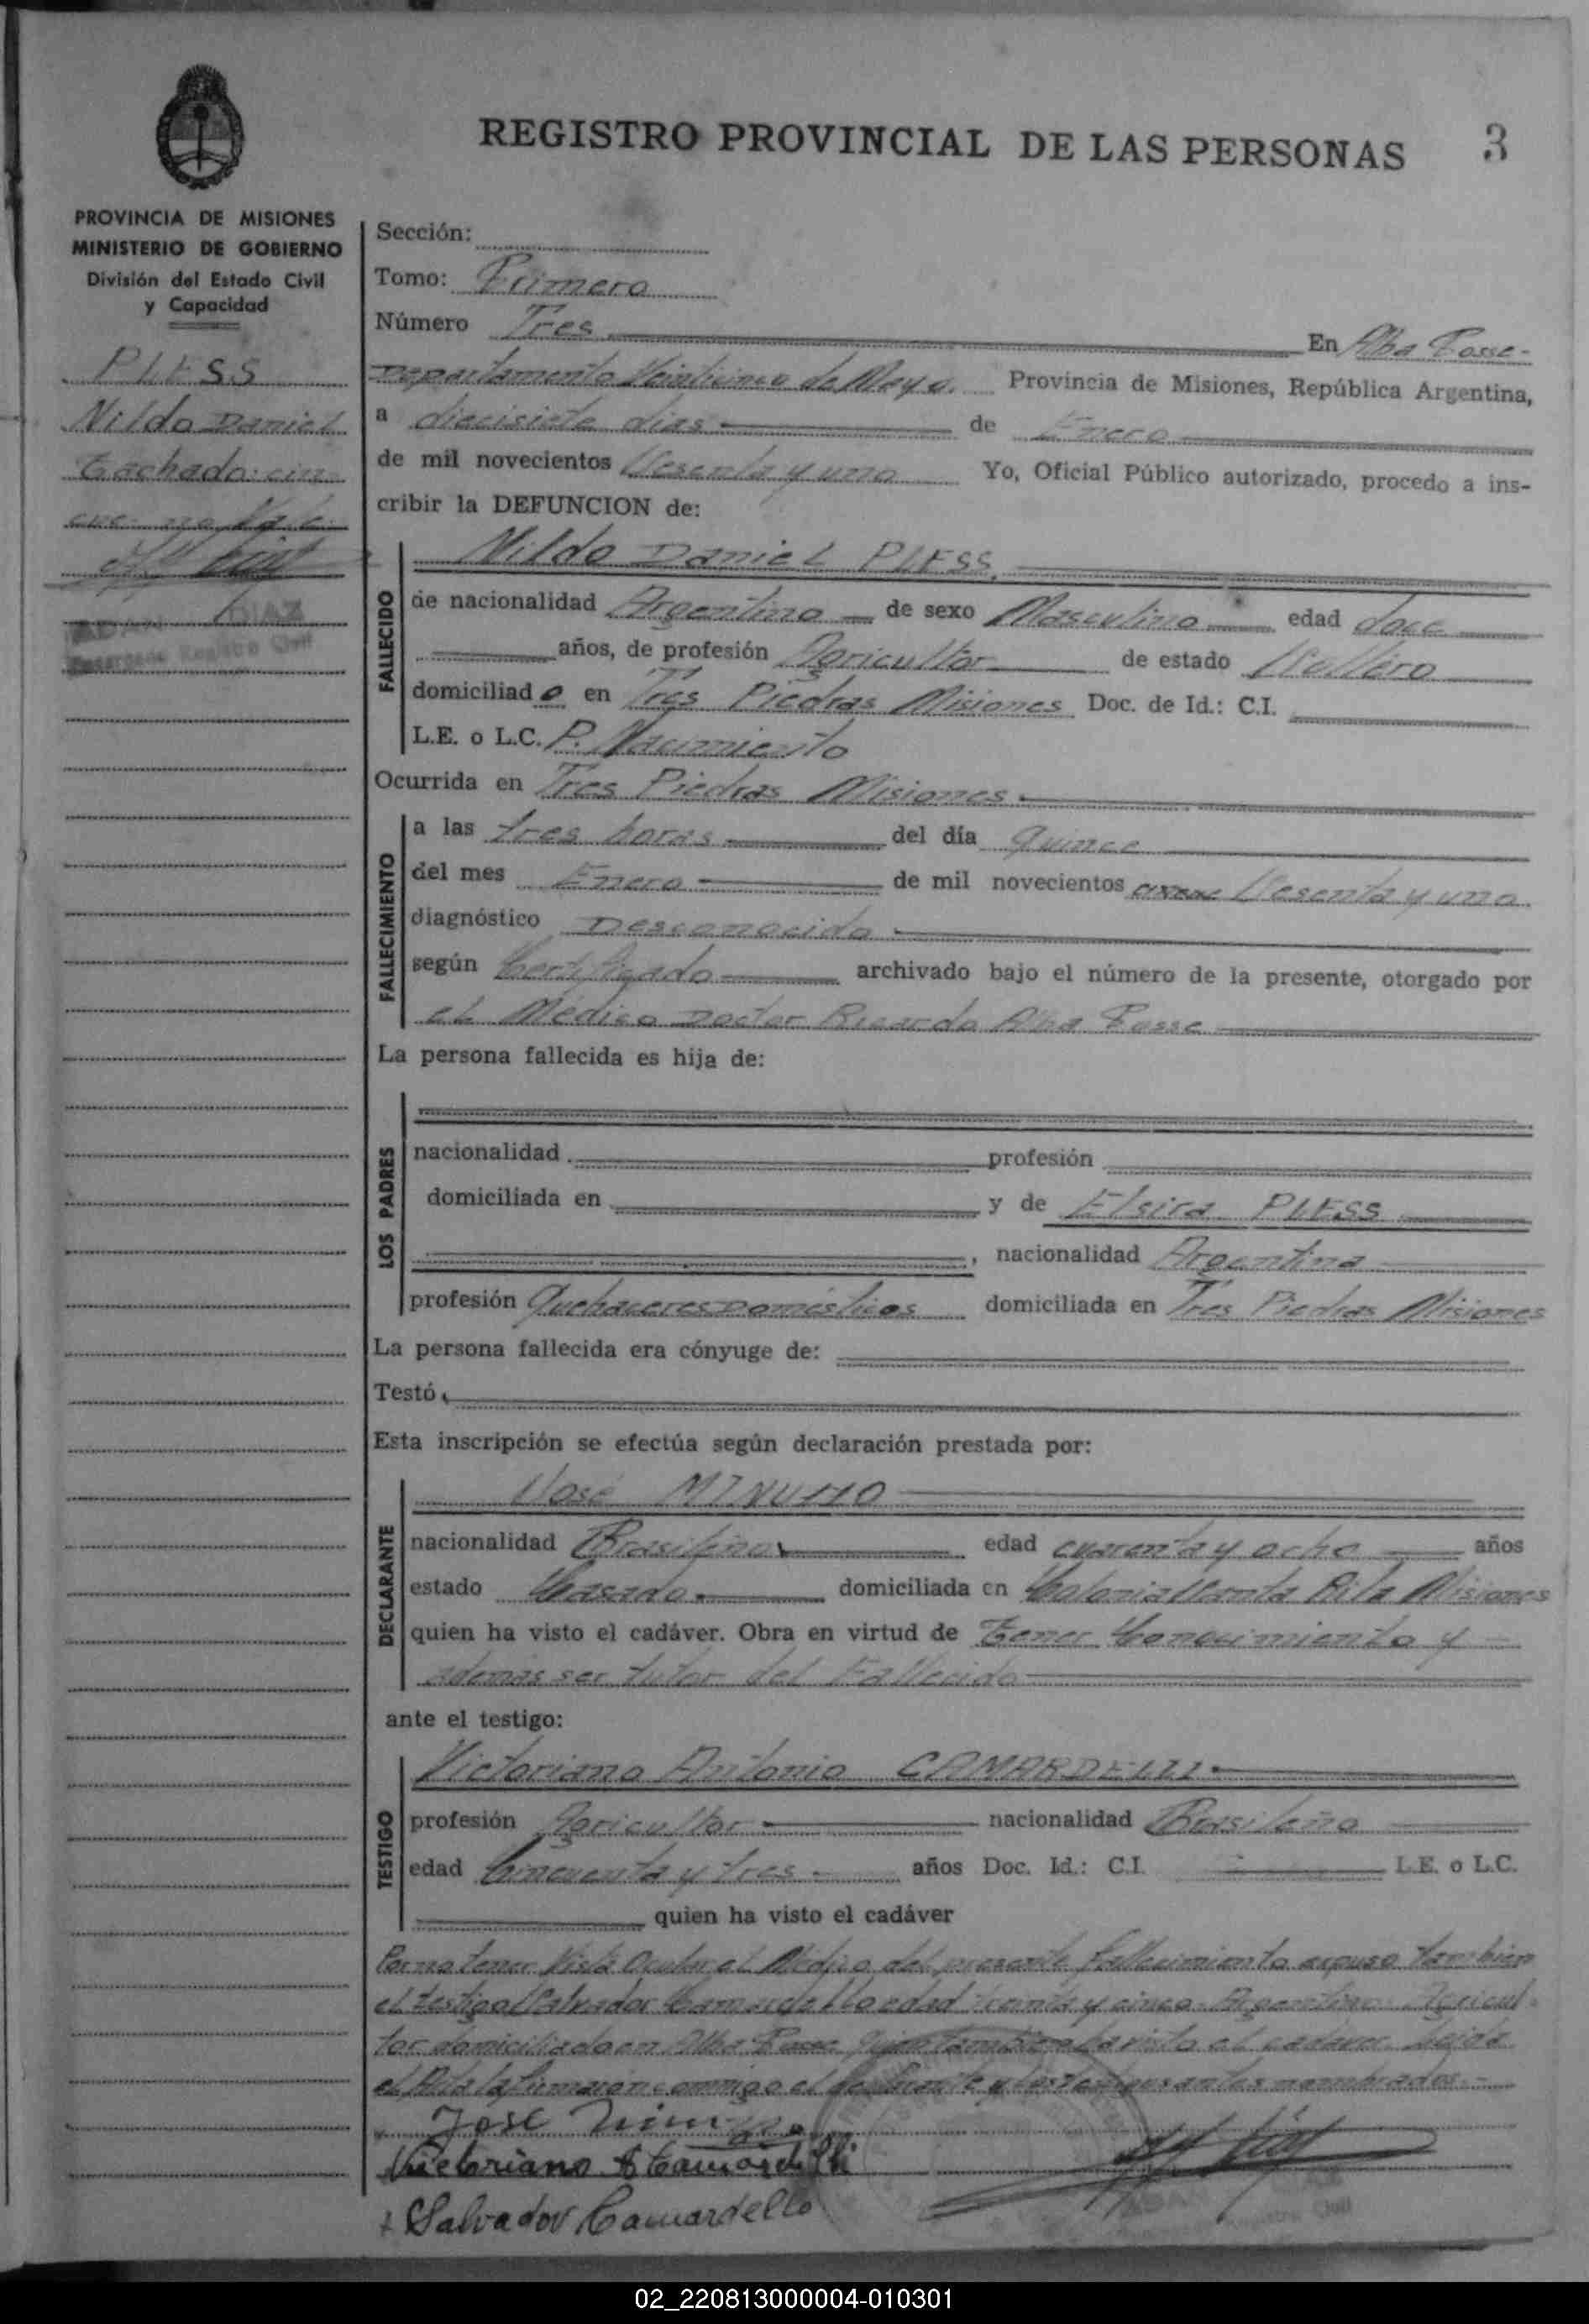 REGISTRO PROVINCIAL DE LAS PERSONAS
3
PROVINCIA DE MISIONES
MINISTERIO DE GOBIERNO
División del Estado Civil
y Capacidad
PLESS
Nildo Daniel
Tachado: cin
cue no Vale
ADAN DIAZ
Encargado Registro Civil
Sección:
Tomo: Primero
Número Tres En Alba Posse-
Departamento Veinticinco de Mayo. Provincia de Misiones, República Argentina,
a diecisiete dias de Enero
de mil novecientos Sesenta y uno Yo, Oficial Público autorizado, procedo a ins-
cribir la DEFUNCION de:
Nildo Daniel PLESS.
FALLECIDO
de nacionalidad Argentino de sexo Masculino edad doce
años, de profesión Agricultor de estado Soltero
domiciliado en Tres Piedras Misiones Doc. de Id.: C.I.
L.E. o L.C. P. Nacimiento
Ocurrida en Tres Piedras Misiones
FALLECIMIENTO
a las tres horas del día Quince
del mes Enero de mil novecientos Sesenta y uno
diagnóstico Desconocido
según Certificado archivado bajo el número de la presente, otorgado por
el Médico Doctor Ricardo Alba Posse
La persona fallecida es hija de:
LOS PADRES
nacionalidad profesión
domiciliada en y de Elsira PLESS
, nacionalidad Argentina
profesión Quehaceres Domésticos domiciliada en Tres Piedras Misiones
La persona fallecida era cónyuge de:
Testó
Esta inscripción se efectúa según declaración prestada por:
DECLARANTE
José
nacionalidad Brasileño edad cuarenta y ocho años
estado Casado domiciliada en Colonia Santa Rita Misiones
quien ha visto el cadáver. Obra en virtud de Tener Conocimiento y
además ser tutor del Fallecido
ante el testigo:
TESTIGO
Victoriano Antonio CAMARDELLI
profesión Agricultor nacionalidad Brasileño
edad Cincuenta y tres años Doc. Id.: C.I. L.E. o L.C.
quien ha visto el cadáver
Por no tener Vista Ocular el Médico del presente fallecimiento expuso tambien
el testigo Salvador Camardello edad treinta y cinco Argentino Agricul-
tor domiciliado en Alba Posse quien tambien ha visto el cadáver Leída
el Acta la firmaron conmigo el declarante y los testigos antes nombrados.-
José
Victoriano A Camardelli
+ Salvador Camardello
02_220813000004-010301